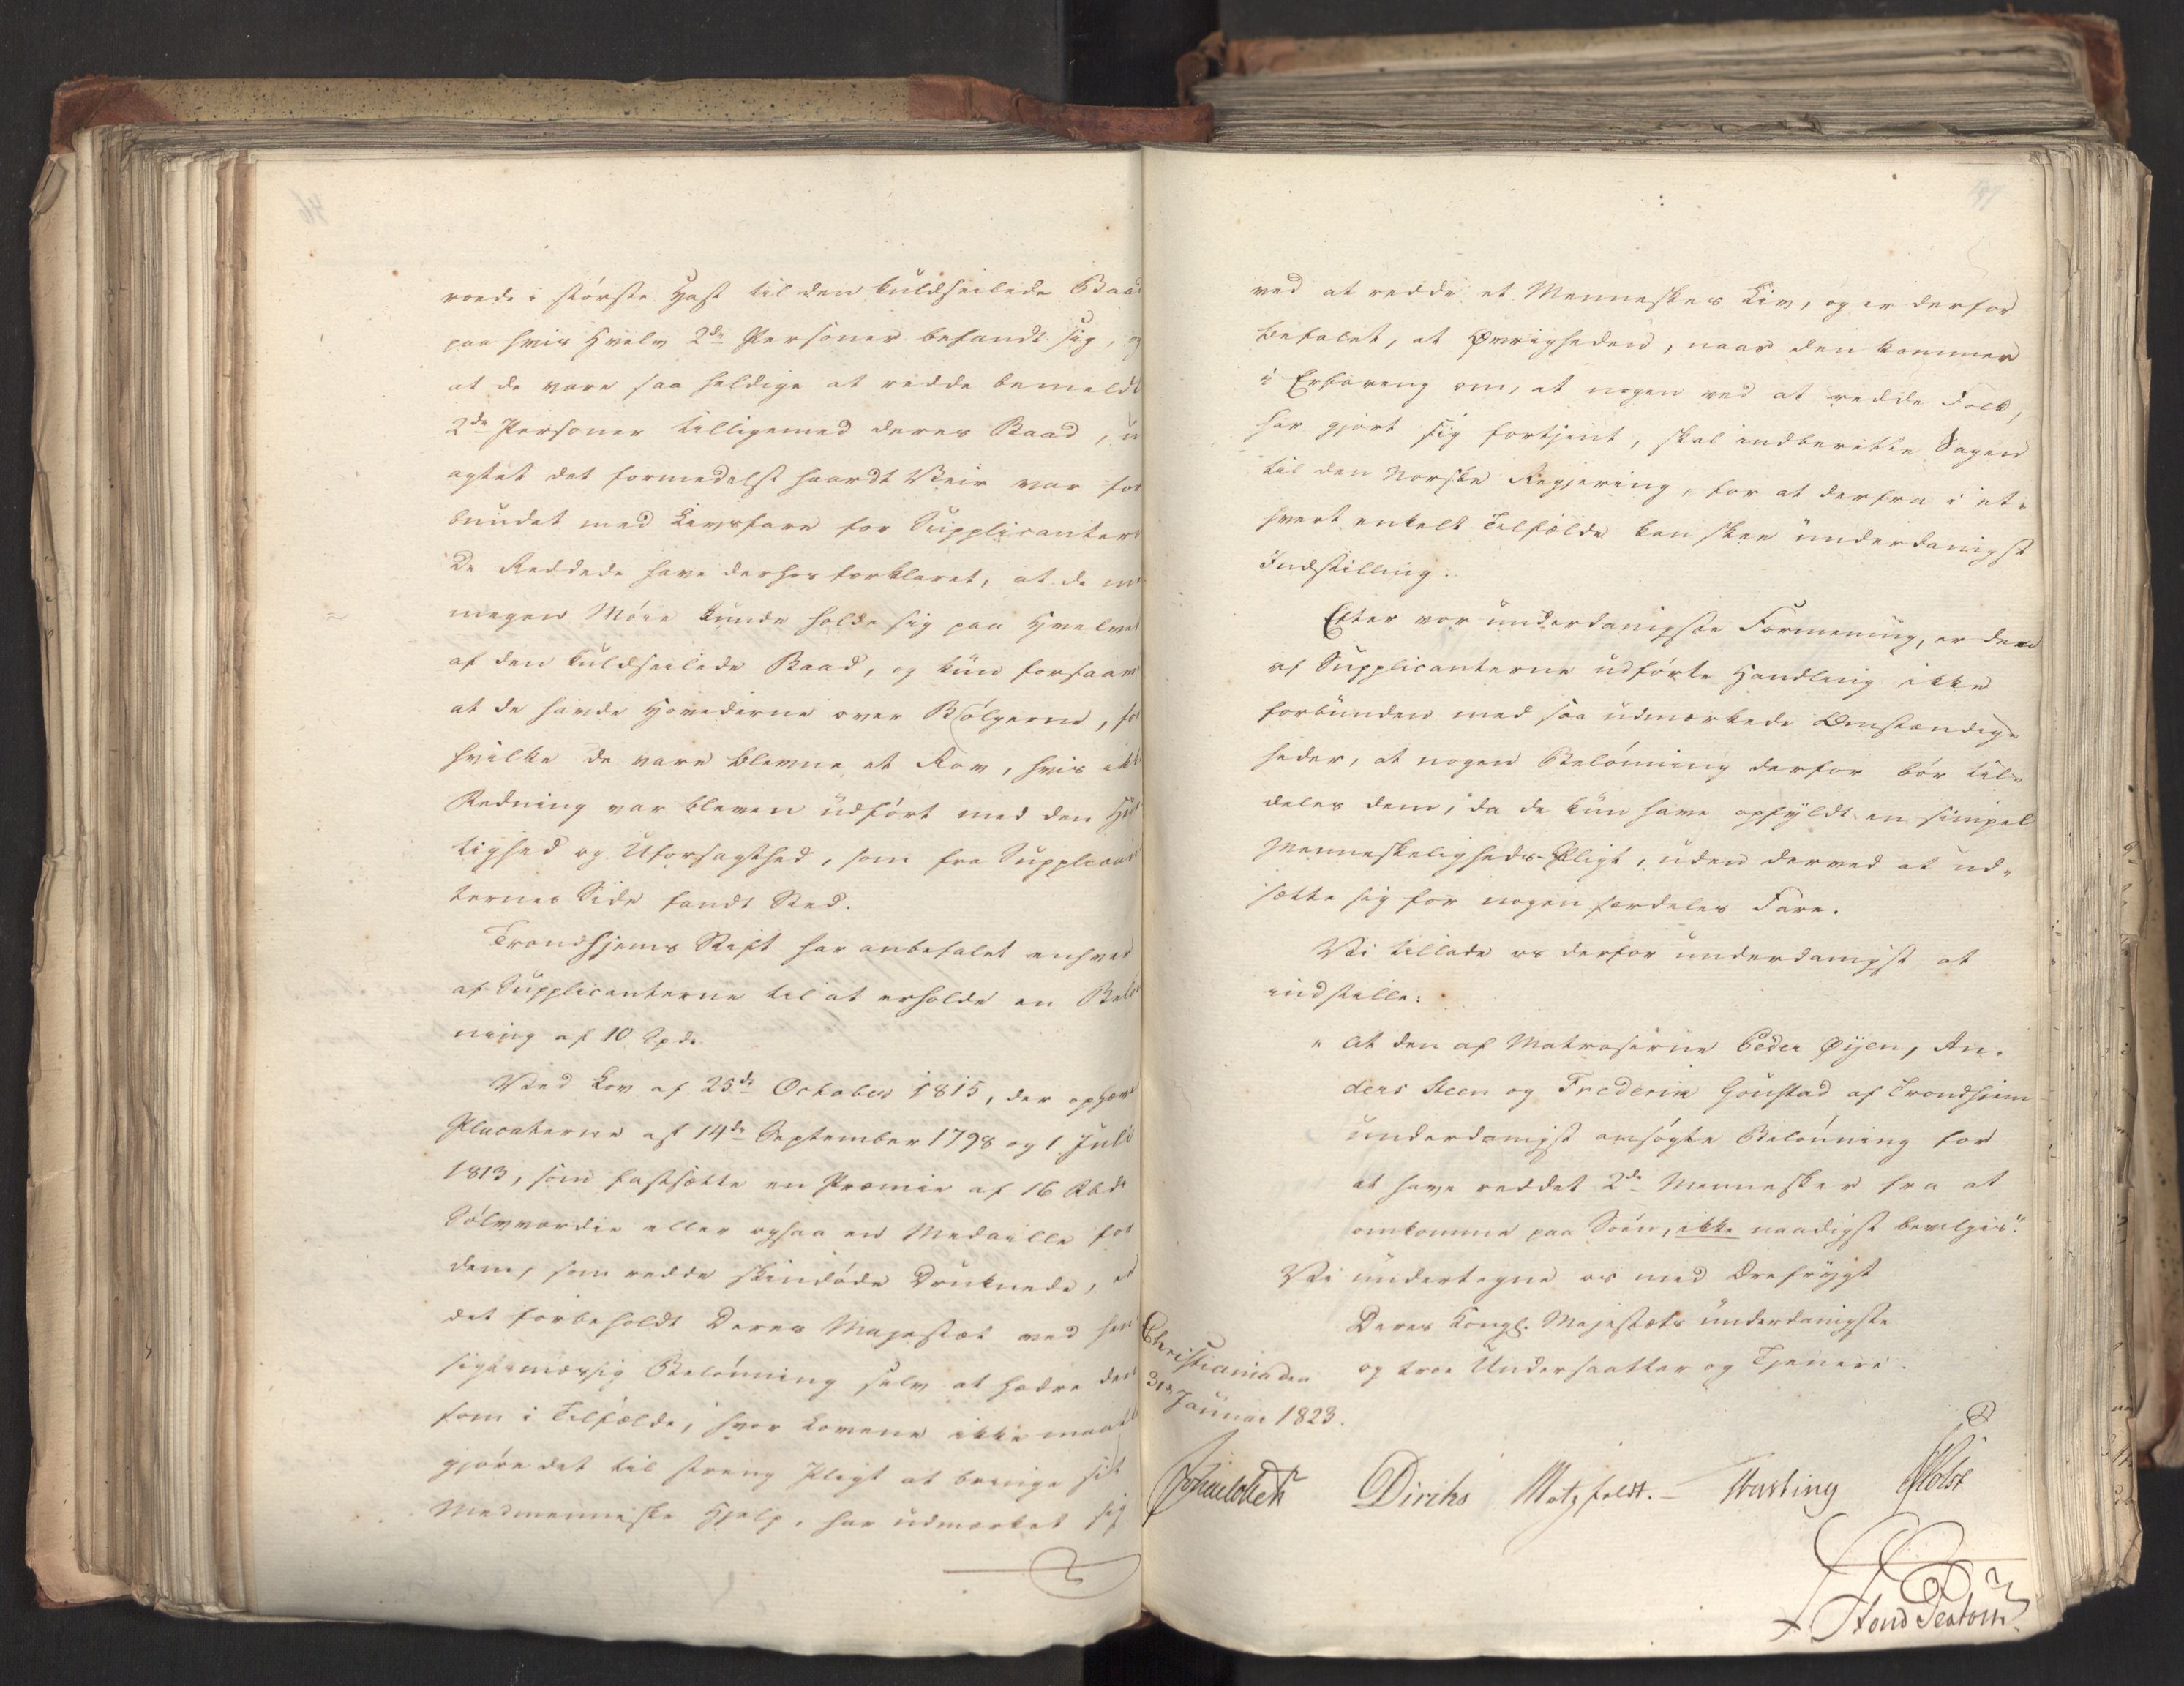 roede i största Hast til den kuldseilede Baad
paa hvis Hvelv 2de Personer befandt sig, og
at de vare saa heldige at redde bemeldte
2de Personer tilligemed deres Baad, u
agtet det formedelst haardt Veir var for
bundet med Livsfare for Supplicanter
De Reddede have derhos forklaret, at de m
megen Möie kunde holde sig paa Hvelvet
af den kuldseilede Baad, og kun forsaavi
at de havde Hovederne over Bölgerne, for
hvilke de vare blevne et Rov, hvis ikke
Redning var bleven udfört med den Hur
tighed og Uforsagthed, som fra Supplican
ternes Side fandt Sted.
Trondhjems Stift har anbefalet enhver
af Supplicanterne til at erholde en Belö
ning af 10 Spd.
Ved Lov af 25de October 1815, der ophæve
Placaterne af 14de September 1798 og 1 Juli
1813, som fastsætte en Præmie af 16 Rbd
Sölvværdie eller ogsaa en Medaille for
dem, som redde skindöde Druknede, er
det forbeholdt Deres Majestæt ved hen
sigtsmæssig Belönning selv at hædre den
som i Tilfælde, hvor Lovene ikke maatte
gjöre det til streng Pligt at bringe sit
Medmenneske Hjelp, har udmærket sig
47
ved at redde et Menneskes Liv, og er derfor
befalet, at Övrigheden, naar den kommer
i Erfaring om, at nogen ved at redde Folk,
har gjort sig fortjent, skal indberette Sagen
til den Norske Regjering, for at derfra i et
hvert enkelt Tilfælde kan skee underdanigst
Indstilling.
Efter vor underdanigste Formening, er den
af Supplicanterne udförte Handling ikke
forbunden med saa udmærkede Omstændig-
heder, at nogen Belönning derfor bör til-
deles dem, da de kun have opfyldt en simpel
Menneskeligheds-Pligt, uden derved at ud-
sætte sig for nogen særdeles Fare.
Vi tillade os derfor underdanigst at
indstille:
" At den af Matroserne Peder Øijen, An-
ders Steen og Frederik Goustad af Trondhiem
underdanigst ansögte Belönning for
at have reddet 2de Mennesker fra at
omkomme paa Söen, ikke naadigst bevilges."
Vi undertegne os med Ærefrygt
Deres Kongl. Majestæts underdanigste
og troe Undersaatter og Tjenere.
Christiania den
31te Januar 1823.
Diriks Motzfeldt. Holst